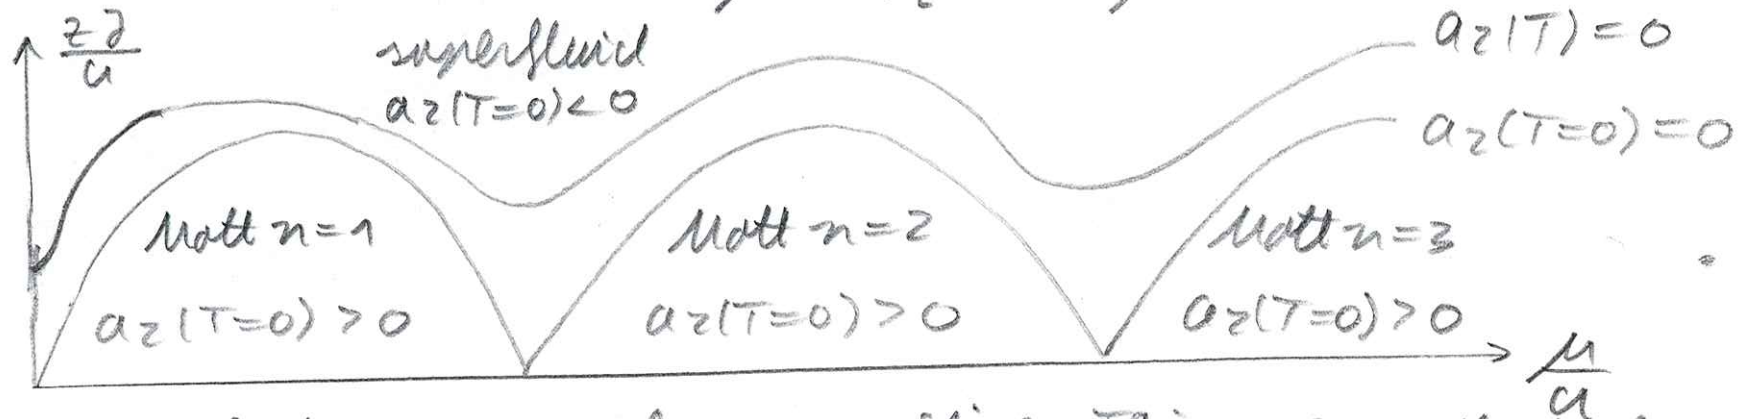 zJ/u
superfluid
a₂(T=0)<0
a₂(T)=0
a₂(T=0)=0
Mott n=1
a₂(T=0)>0
Mott n=2
a₂(T=0)>0
Mott n=3
a₂(T=0)>0
μ/u